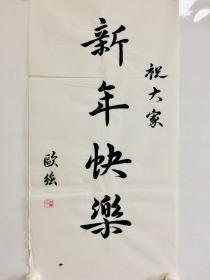 祝大家
新年快樂
歐強